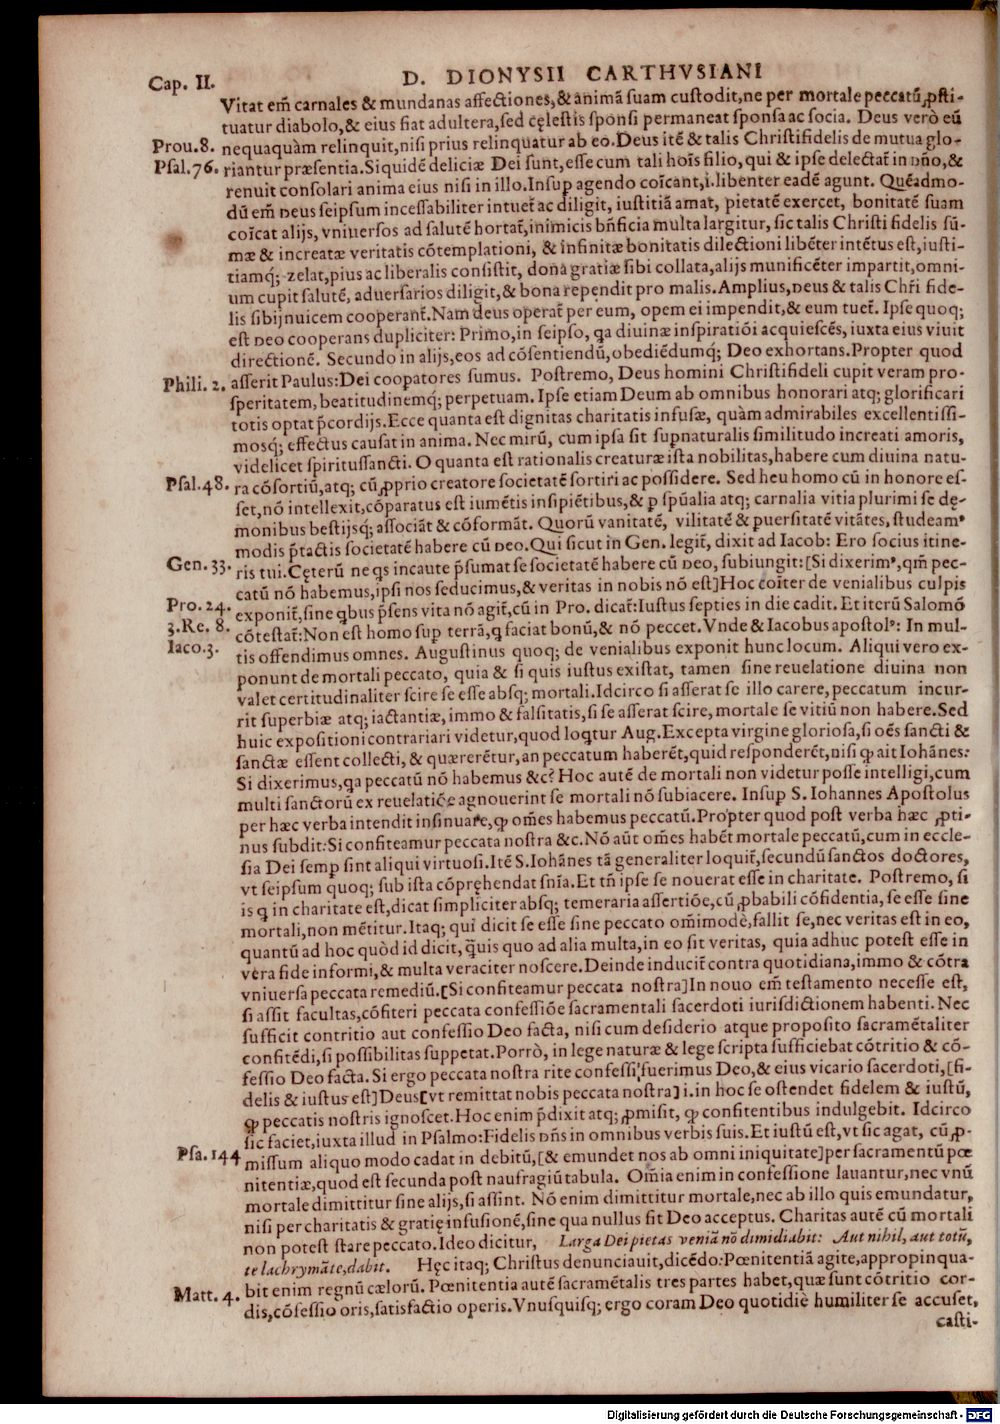 Cap. II. D. DIONYSII CARTHVSIANI
Vitat em̄ carnales & mundanas affectiones,& animā suam custodit,ne per mortale peccatū ꝓsti-
tuatur diabolo,& eius fiat adultera,sed cęlestis sponsi permaneat sponsa ac socia. Deus verò eū
Prou.8. nequaquàm relinquit,nisi prius relinquatur ab eo.Deus itē & talis Christifidelis de mutua glo-
Psal.76. riantur præsentia.Siquidē deliciæ Dei sunt,esse cum tali hoīs filio,qui & ipse delectat̄ in dn̄o,&
renuit consolari anima eius nisi in illo.Insuꝑ agendo coīcant,i.libenter eadē agunt. Quēadmo-
dū em̄ Deus seipsum incessabiliter intuet̄ ac diligit, iustitiā amat, pietatē exercet, bonitatē suam
coīcat alijs, vniuersos ad salutē hortat̄,inimicis bn̄ficia multa largitur, sic talis Christi fidelis sū-
mæ & increatæ veritatis cōtemplationi, & infinitæ bonitatis dilectioni libēter intētus est,iusti-
tiamq; zelat,pius ac liberalis consistit, dona gratiæ sibi collata,alijs munificēter impartit,omni-
um cupit salutē, aduersarios diligit,& bona rependit pro malis.Amplius,Deus & talis Chr̄i fide-
lis sibijnuicem cooperant̄.Nam deus operat̄ per eum, opem ei impendit,& eum tuet̄. Ipse quoq;
est Deo cooperans dupliciter: Primo,in seipso, qa diuinæ inspiratiōi acquiescēs, iuxta eius viuit
directionē. Secundo in alijs,eos ad cōsentiendū,obediēdumq; Deo exhortans.Propter quod
Phili. 2. asserit Paulus:Dei cooꝑatores sumus. Postremo, Deus homini Christifideli cupit veram pro-
speritatem, beatitudinemq; perpetuam. Ipse etiam Deum ab omnibus honorari atq; glorificari
totis optat p̄cordijs.Ecce quanta est dignitas charitatis infusæ, quàm admirabiles excellentissi-
mosq; effectus causat in anima. Nec mirū, cum ipsa sit suꝑnaturalis similitudo increati amoris,
videlicet spiritussancti. O quanta est rationalis creaturæ ista nobilitas,habere cum diuina natu-
Psal.48. ra cōsortiū,atq; cū ꝓprio creatore societatē sortiri ac possidere. Sed heu homo cū in honore es-
set,nō intellexit,cōparatus est iumētis insipiētibus,& ꝑ spūalia atq; carnalia vitia plurimi se dę-
monibus bestijsq; associāt & cōformāt. Quorū vanitatē, vilitatē & ꝑuersitatē vitātes, studeamꝰ
modis p̄tactis societatē habere cū Deo.Qui sicut in Gen. legit̄, dixit ad Iacob: Ero socius itine-
Gen. 33. ris tui.Cęterū ne qs incaute p̄sumat se societatē habere cū Deo, subiungit:[Si dixerimꝰ,qm̄ pec-
catū nō habemus,ipsi nos seducimus,& veritas in nobis nō est]Hoc coīter de venialibus culpis
Pro. 24. exponit̄,sine qbus p̄sens vita nō agit̄,cū in Pro. dicat̄:Iustus septies in die cadit. Et iterū Salomō
3.Re. 8. cōtestat̄:Non est homo suꝑ terrā,q faciat bonū,& nō peccet.Vnde & Iacobus apostolꝰ: In mul-
Iaco.3. tis offendimus omnes. Augustinus quoq; de venialibus exponit hunc locum. Aliqui vero ex-
ponunt de mortali peccato, quia & si quis iustus existat, tamen sine reuelatione diuina non
valet certitudinaliter scire se esse absq; mortali.Idcirco si asserat se illo carere,peccatum incur-
rit superbiæ atq; iactantiæ, immo & falsitatis,si se asserat scire, mortale se vitiū non habere.Sed
huic expositioni contrariari videtur,quod loqtur Aug.Excepta virgine gloriosa,si oēs sancti &
sanctæ essent collecti, & quærerētur, an peccatum haberēt,quid responderēt,nisi ꝙ ait Iohānes:
Si dixerimus,qa peccatū nō habemus &c? Hoc autē de mortali non videtur posse intelligi,cum
multi sanctorū ex reuelatiōe agnouerint se mortali nō subiacere. Insuꝑ S. Iohannes Apostolus
per hæc verba intendit insinuare,ꝙ om̄es habemus peccatū.Propter quod post verba hæc ꝓti-
nus subdit:Si confiteamur peccata nostra &c.Nō aūt om̄es habēt mortale peccatū,cum in eccle-
sia Dei semꝑ sint aliqui virtuosi.Itē S.Iohānes tā generaliter loquit̄,secundū sanctos doctores,
vt seipsum quoq; sub ista cōpręhendat sn̄ia.Et tn̄ ipse se nouerat esse in charitate. Postremo, si
is q in charitate est,dicat simpliciter absq; temeraria assertiōe,cū ꝓbabili cōfidentia, se esse sine
mortali,non mētitur.Itaq; qui dicit se esse sine peccato om̄imodè,fallit se,nec veritas est in eo,
quantū ad hoc quòd id dicit, q̄uis quo ad alia multa,in eo sit veritas, quia adhuc potest esse in
vera fide informi,& multa veraciter noscere.Deinde inducit̄ contra quotidiana,immo & cōtra
vniuersa peccata remediū.[Si confiteamur peccata nostra]In nouo em̄ testamento necesse est,
si assit facultas,cōfiteri peccata confessiōe sacramentali sacerdoti iurisdictionem habenti. Nec
sufficit contritio aut confessio Deo facta, nisi cum desiderio atque proposito sacramētaliter
confitēdi,si possibilitas suppetat.Porrò, in lege naturæ & lege scripta sufficiebat cōtritio & cō-
fessio Deo facta. Si ergo peccata nostra rite confessi fuerimus Deo,& eius vicario sacerdoti,[fi-
delis & iustus est]Deus[vt remittat nobis peccata nostra] i.in hoc se ostendet fidelem & iustū,
ꝙ peccatis nostris ignoscet.Hoc enim p̄dixit atq; ꝓmisit, ꝙ confitentibus indulgebit. Idcirco
sic faciet,iuxta illud in Psalmo:Fidelis dn̄s in omnibus verbis suis.Et iustū est,vt sic agat, cū ꝓ-
Psa. 144 missum aliquo modo cadat in debitū,[& emundet nos ab omni iniquitate]per sacramentū pœ
nitentiæ,quod est secunda post naufragiū tabula. Om̄ia enim in confessione lauantur,nec vnū
mortale dimittitur sine alijs,si assint. Nō enim dimittitur mortale,nec ab illo quis emundatur,
nisi per charitatis & gratię infusionē,sine qua nullus fit Deo acceptus. Charitas autē cū mortali
non potest stare peccato.Ideo dicitur, Larga Dei pietas veniā nō dimidiabit: Aut nihil, aut totū,
te lachrymāte,dabit. Hęc itaq; Christus denunciauit,dicēdo:Pœnitentiā agite,appropinqua-
Matt. 4. bit enim regnū cælorū. Pœnitentia autē sacramētalis tres partes habet,quæ sunt cōtritio cor-
dis,cōfessio oris,satisfactio operis.Vnusquisq; ergo coram Deo quotidiè humiliter se accuset,
casti-
Digitalisierung gefördert durch die Deutsche Forschungsgemeinschaft - DFG